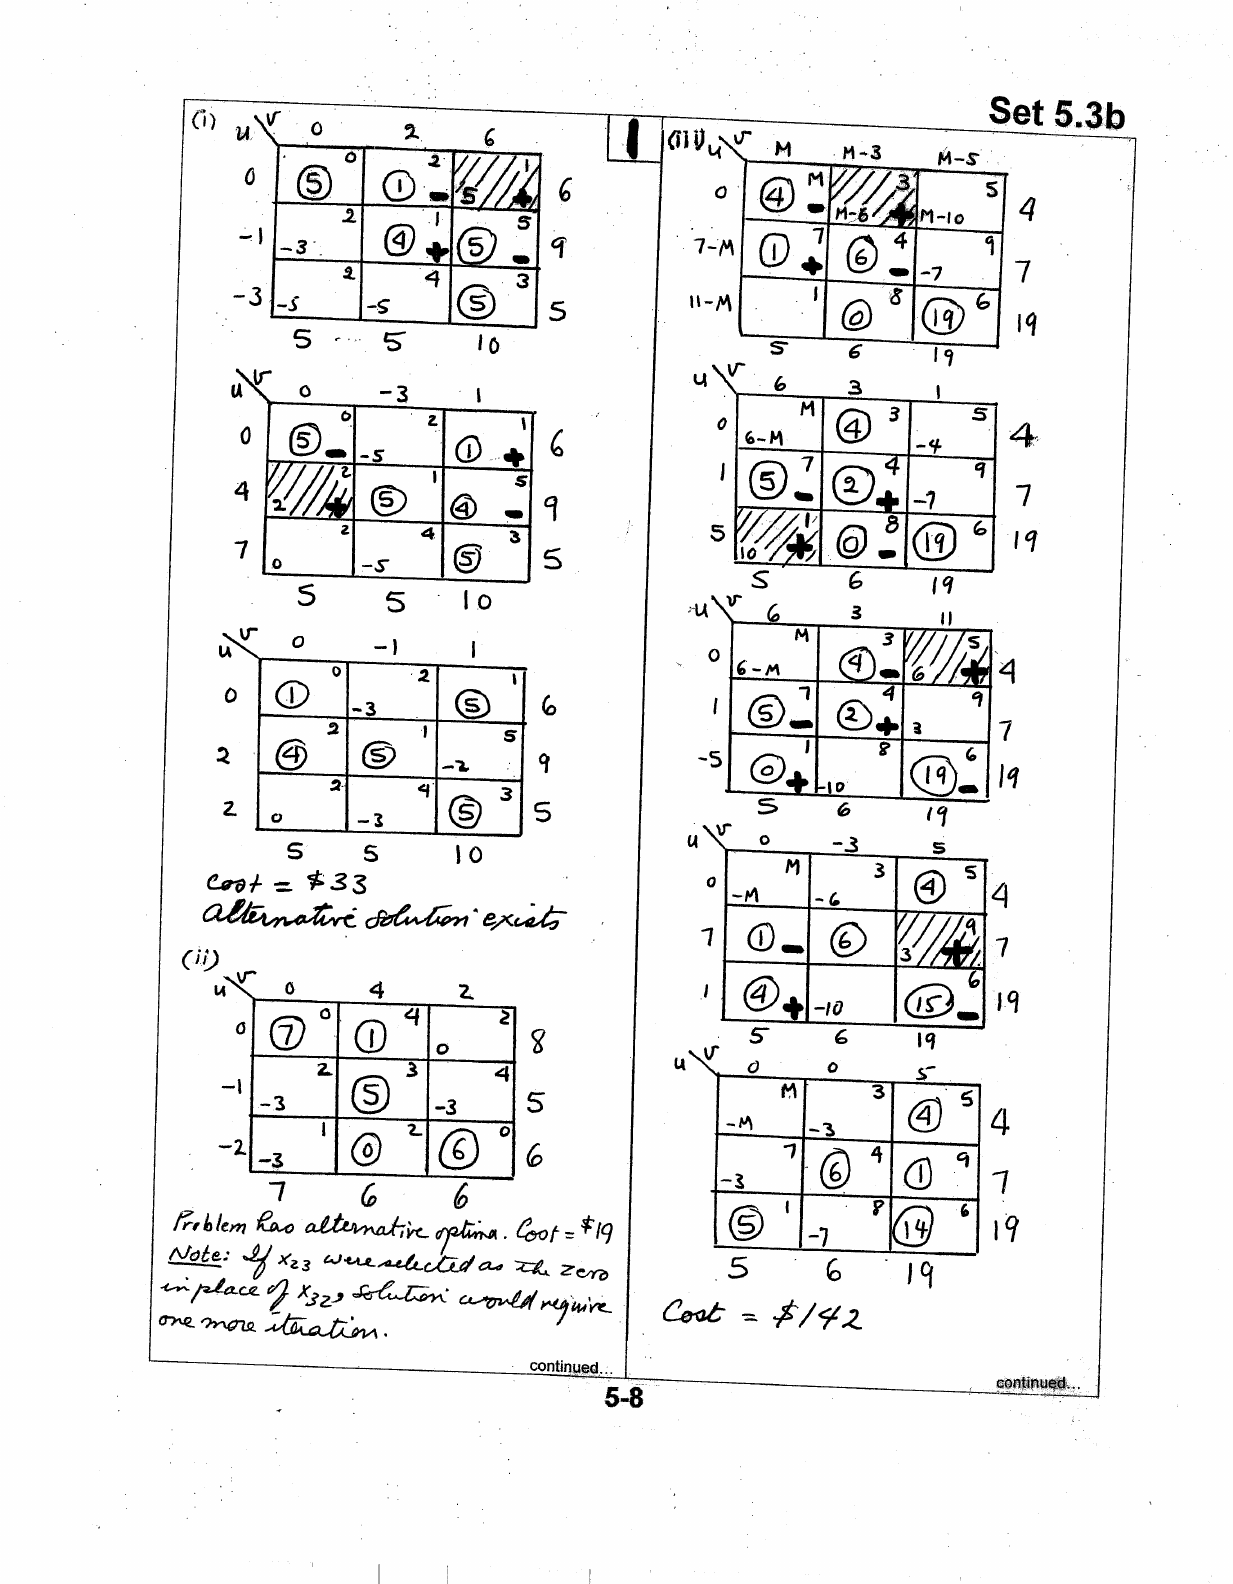 Set 5.3b
1
(i) u v 0 2 6
0 ⑤ 0 ① 2 - 5 1 + 6
-1 -3 2 ④ 1 + ⑤ 5 - 9
-3 -5 2 -5 4 ⑤ 3 5
5 5 10
u v 0 -3 1
0 ⑤ 0 - -5 2 ① 1 + 6
4 2 2 + ⑤ 1 ④ 5 - 9
7 0 2 -5 4 ⑤ 3 5
5 5 10
u v 0 -1 1
0 ① 0 -3 2 ⑤ 1 6
2 ④ 2 ⑤ 1 -2 5 9
2 0 2 -3 4 ⑤ 3 5
5 5 10
Cost = $33
Alternative solution exists
(ii)
u v 0 4 2
0 ⑦ 0 ① 4 0 2 8
-1 -3 2 ⑤ 3 -3 4 5
-2 -3 1 ⓪ 2 ⑥ 0 6
7 6 6
Problem has alternative optima. Cost = $19
Note: If x23 were selected as the zero
in place of x32, solution would require
one more iteration.
continued...
(iii) u v M M-3 M-5
0 ④ M - M-6 3 + M-10 5 4
7-M ① 7 + ⑥ 4 - -7 9 7
11-M 1 ⓪ 8 ⑲ 6 19
5 6 19
u v 6 3 1
0 6-M M ④ 3 -4 5 4
1 ⑤ 7 - ② 4 + -7 9 7
5 10 1 + ⓪ 8 - ⑲ 6 19
5 6 19
u v 6 3 11
0 6-M M ④ 3 - 6 5 + 4
1 ⑤ 7 - ② 4 + 3 9 7
-5 ⓪ 1 + -10 8 ⑲ 6 - 19
5 6 19
u v 0 -3 5
0 -M M -6 3 ④ 5 4
7 ① - ⑥ 3 9 + 7
1 ④ + -10 ⑮ 6 - 19
5 6 19
u v 0 0 5
-M M -3 3 ④ 5 4
-3 7 ⑥ 4 ① 9 7
⑤ 1 -7 8 ⑭ 6 19
5 6 19
Cost = $142
continued...
5-8